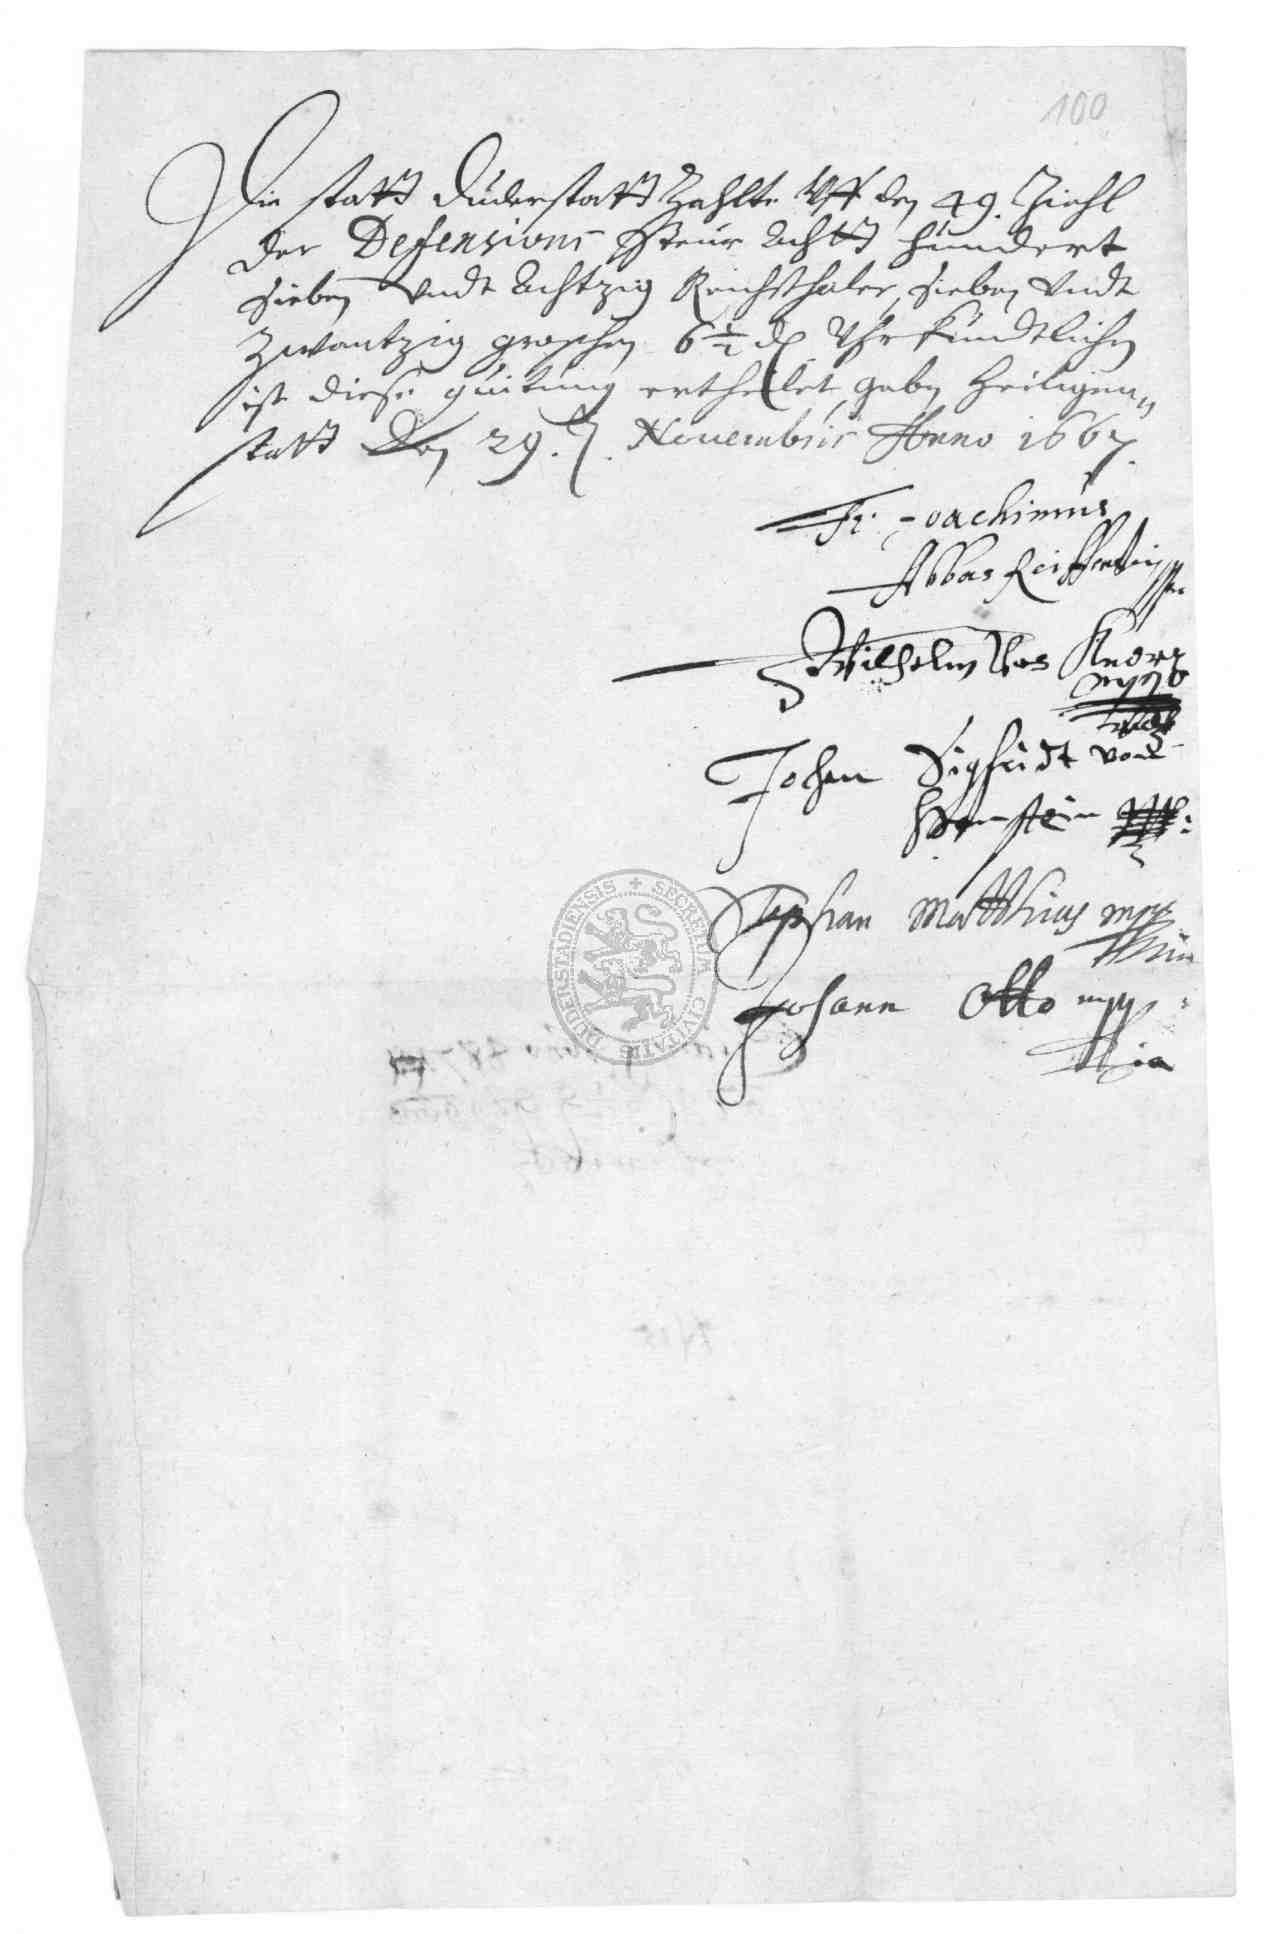 100
Die statt Duderstatt Zahlte Vff den 49. Ziehl
der Defensions Steur Acht hundert
sieben Vndt Achtzig Reichsthaler, sieben Vndt
Zwantzig groschen 6 1/2 d Vhrkündtlichen
ist diese quitung ertheilet, geben Heiligen„
statt Den 29. Novembris Anno 1667.
Fr. Joachimus
Abbas Reiffenstein
Wilhelm Knorr
mpp
Johan Sigfridt von
Hanstein
Stephan Matthias mpp
Johann Otto mpp
SECRETUM CIVITATIS DUDERSTADIENSIS